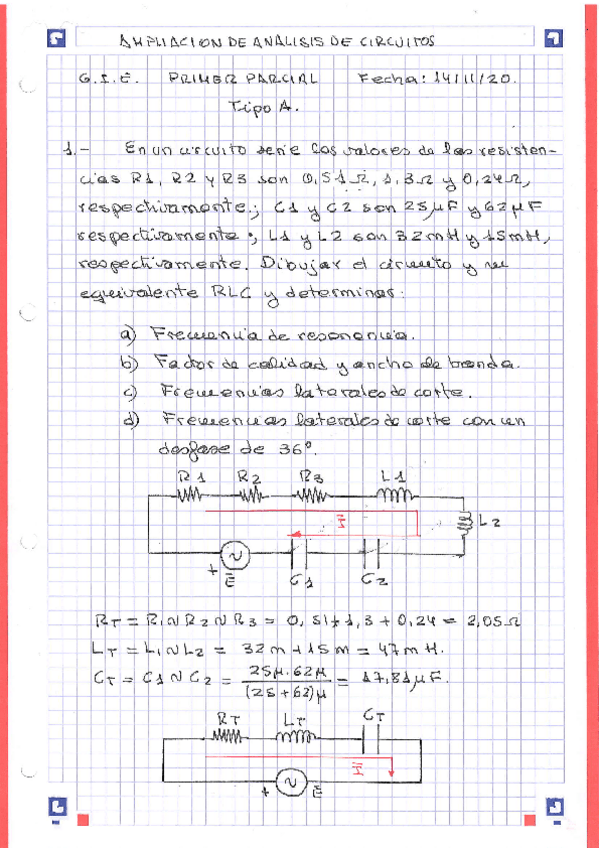 AMPLIACION DE ANALISIS DE CIRCUITOS
G.I.E. PRIMER PARCIAL Fecha: 14/11/20.
Tipo A.
1.- En un circuito serie los valores de las resisten-
cias R1, R2 y R3 son 0,51Ω, 1,3Ω y 0,24Ω,
respectivamente; C1 y C2 son 25μF y 62μF
respectivamente; L1 y L2 son 32mH y 15mH,
respectivamente. Dibujar el circuito y su
equivalente RLC y determinar:
a) Frecuencia de resonancia.
b) Factor de calidad y ancho de banda.
c) Frecuencias laterales de corte.
d) Frecuencias laterales de corte con un
desfase de 36º.
R1 R2 R3 L1
I L2
+ E C1 C2
RT = R1 ∿ R2 ∿ R3 = 0,51 + 1,3 + 0,24 = 2,05Ω
LT = L1 ∿ L2 = 32m + 15m = 47mH.
CT = C1 ∿ C2 = 25μ·62μ / (25+62)μ = 17,81μF.
RT LT CT
I
+ E